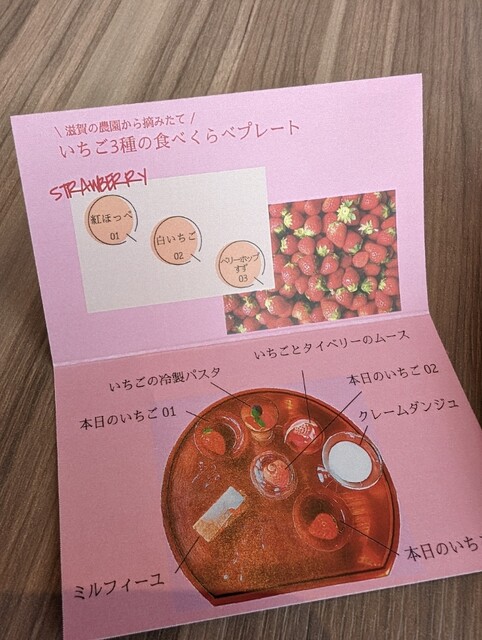 \ 滋賀の農園から摘みたて /
いちご3種の食べくらべプレート
STRAWBERRY
紅ほっぺ
01
白いちご
02
ベリーホップ
すず
03
いちごとタイベリーのムース
いちごの冷製パスタ
本日のいちご 02
本日のいちご 01
クレームダンジュ
本日のいち
ミルフィーユ